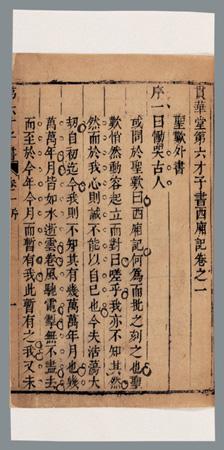 貫華堂第六才子書西廂記卷之一
聖歎外書
序一曰慟哭古人
或問於聖歎曰西廂記何爲而批之刻之也聖
歎悄然動容起立而對曰嗟乎我亦不知其然
然而於我心則誠不能以自已也今夫浩蕩大
刼自初迄今我則不知其有幾萬萬年月也幾
萬萬年月皆如水逝雲卷風馳電掣無不盡去
而至於今年今月而暫有我此暫有之我又未